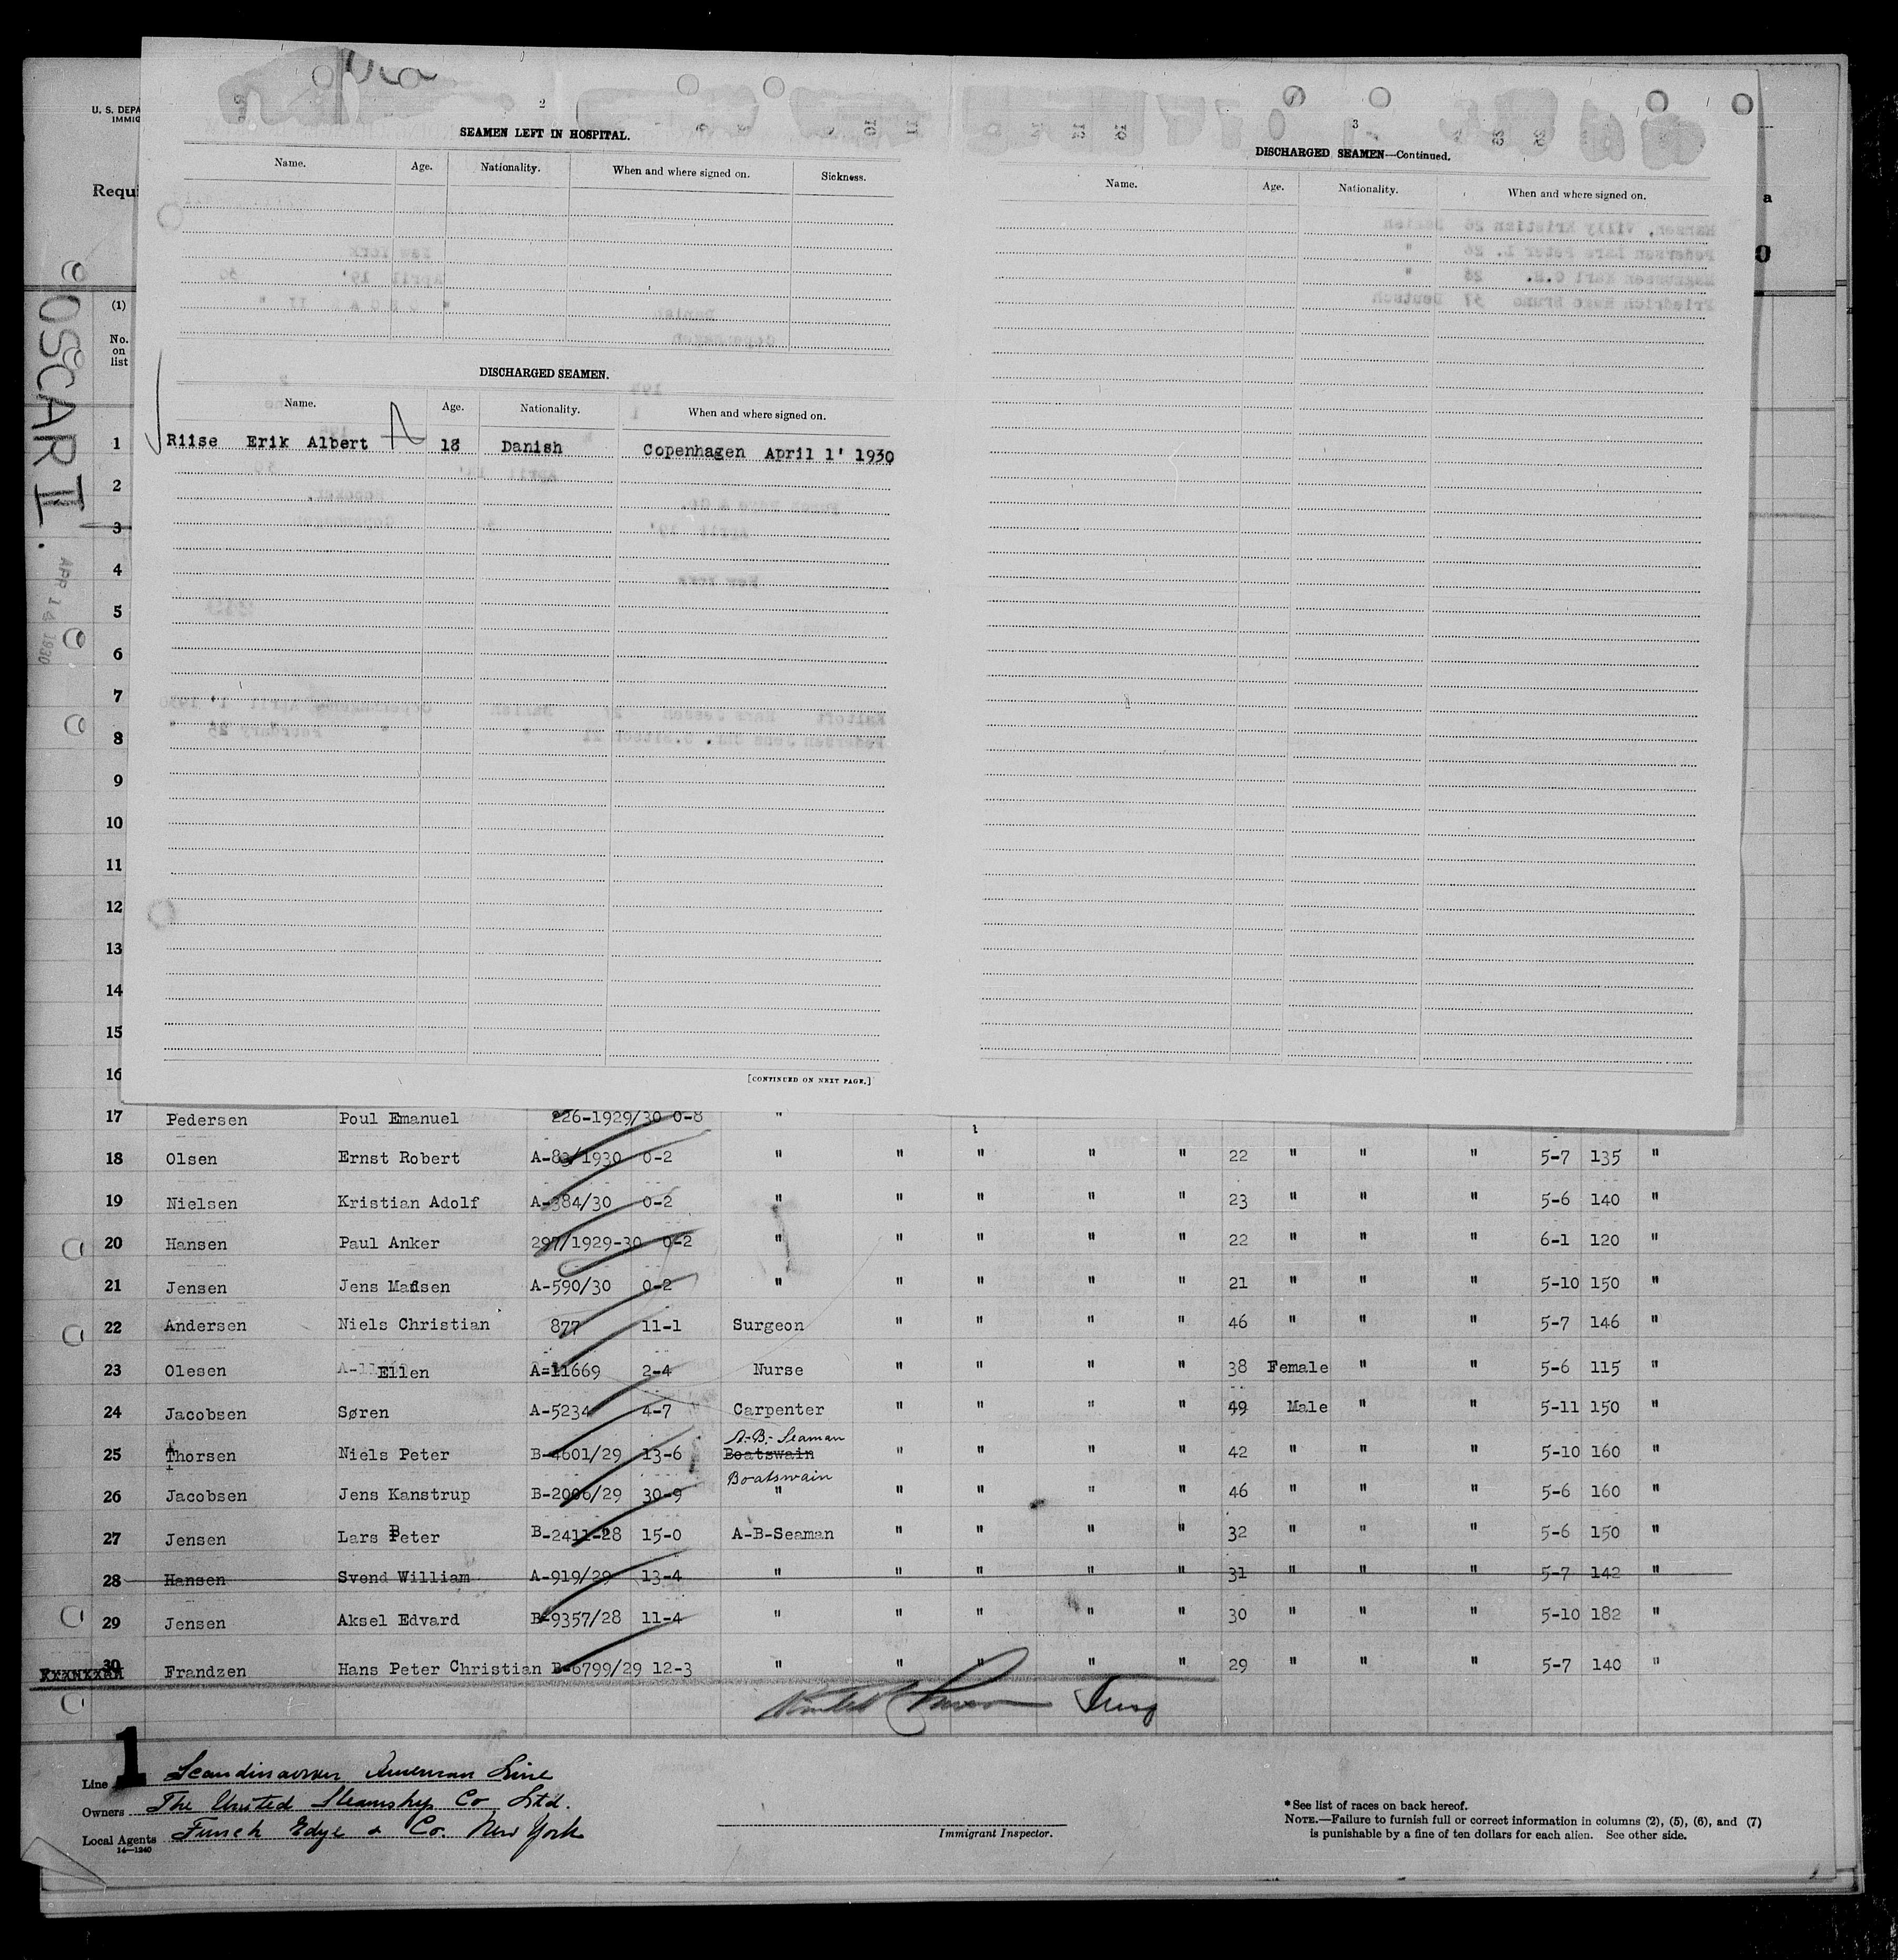 U. S. DEPA
IMMIG
Requi
OSCAR II.
APR 14 1930
(1)
No.
on
list
2
SEAMEN LEFT IN HOSPITAL.
Name. Age. Nationality. When and where signed on. Sickness.
DISCHARGED SEAMEN.
Name. Age. Nationality. When and where signed on.
Riise Erik Albert 18 Danish Copenhagen April 1' 1930
[CONTINUED ON NEXT PAGE.]
3
DISCHARGED SEAMEN—Continued.
Name. Age. Nationality. When and where signed on.
a
0
1
2
3
4
5
6
7
8
9
10
11
12
13
14
15
16
17 Pedersen Poul Emanuel 226-1929/30 0-8 "
18 Olsen Ernst Robert A-83/1930 0-2 " " " " " 22 " " " 5-7 135 "
19 Nielsen Kristian Adolf A-384/30 0-2 " " " " " 23 " " " 5-6 140 "
20 Hansen Paul Anker 297/1929-30 0-2 " " " " " 22 " " " 6-1 120 "
21 Jensen Jens Madsen A-590/30 0-2 " " " " " 21 " " " 5-10 150 "
22 Andersen Niels Christian 877 11-1 Surgeon " " " " 46 " " " 5-7 146 "
23 Olesen Ellen A-11669 2-4 Nurse " " " " 38 Female " " 5-6 115 "
24 Jacobsen Søren A-5234 4-7 Carpenter " " " " 49 Male " " 5-11 150 "
A-B-Seaman
25 Thorsen Niels Peter B-4601/29 13-6 Boatswain " " " " 42 " " " 5-10 160 "
Boatswain
26 Jacobsen Jens Kanstrup B-2006/29 30-9 " " " " " 46 " " " 5-6 160 "
27 Jensen Lars Peter B-2411-28 15-0 A-B-Seaman " " " " 32 " " " 5-6 150 "
28 Hansen Svend William A-919/29 13-4 " " " " " 31 " " " 5-7 142 "
29 Jensen Aksel Edvard B-9357/28 11-4 " " " " " 30 " " " 5-10 182 "
30 Frandzen Hans Peter Christian B-6799/29 12-3 " " " " " 29 " " " 5-7 140 "
1
Line Scandinavian American Line
Owners The United Steamship Co Ltd.
Local Agents Funch Edye & Co. New York
14—1240
Immigrant Inspector.
*See list of races on back hereof.
NOTE.—Failure to furnish full or correct information in columns (2), (5), (6), and (7)
is punishable by a fine of ten dollars for each alien. See other side.